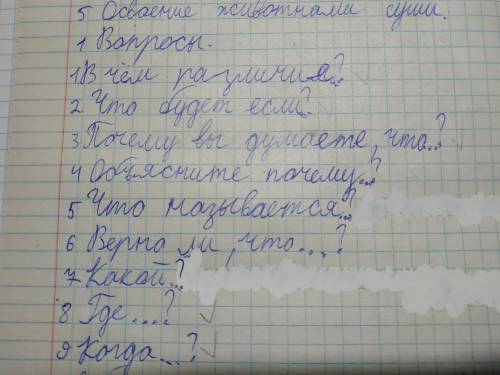 5 Освоение животнами суши.
1 Вопросы.
1 В чём различие..?
2 Что будет если?
3 Почему вы думаете, что..?
4 Объясните почему...?
5 Что называется..?
6 Верна ли, что....?
7 Какой..?
8 Где....?
9 Когда...?